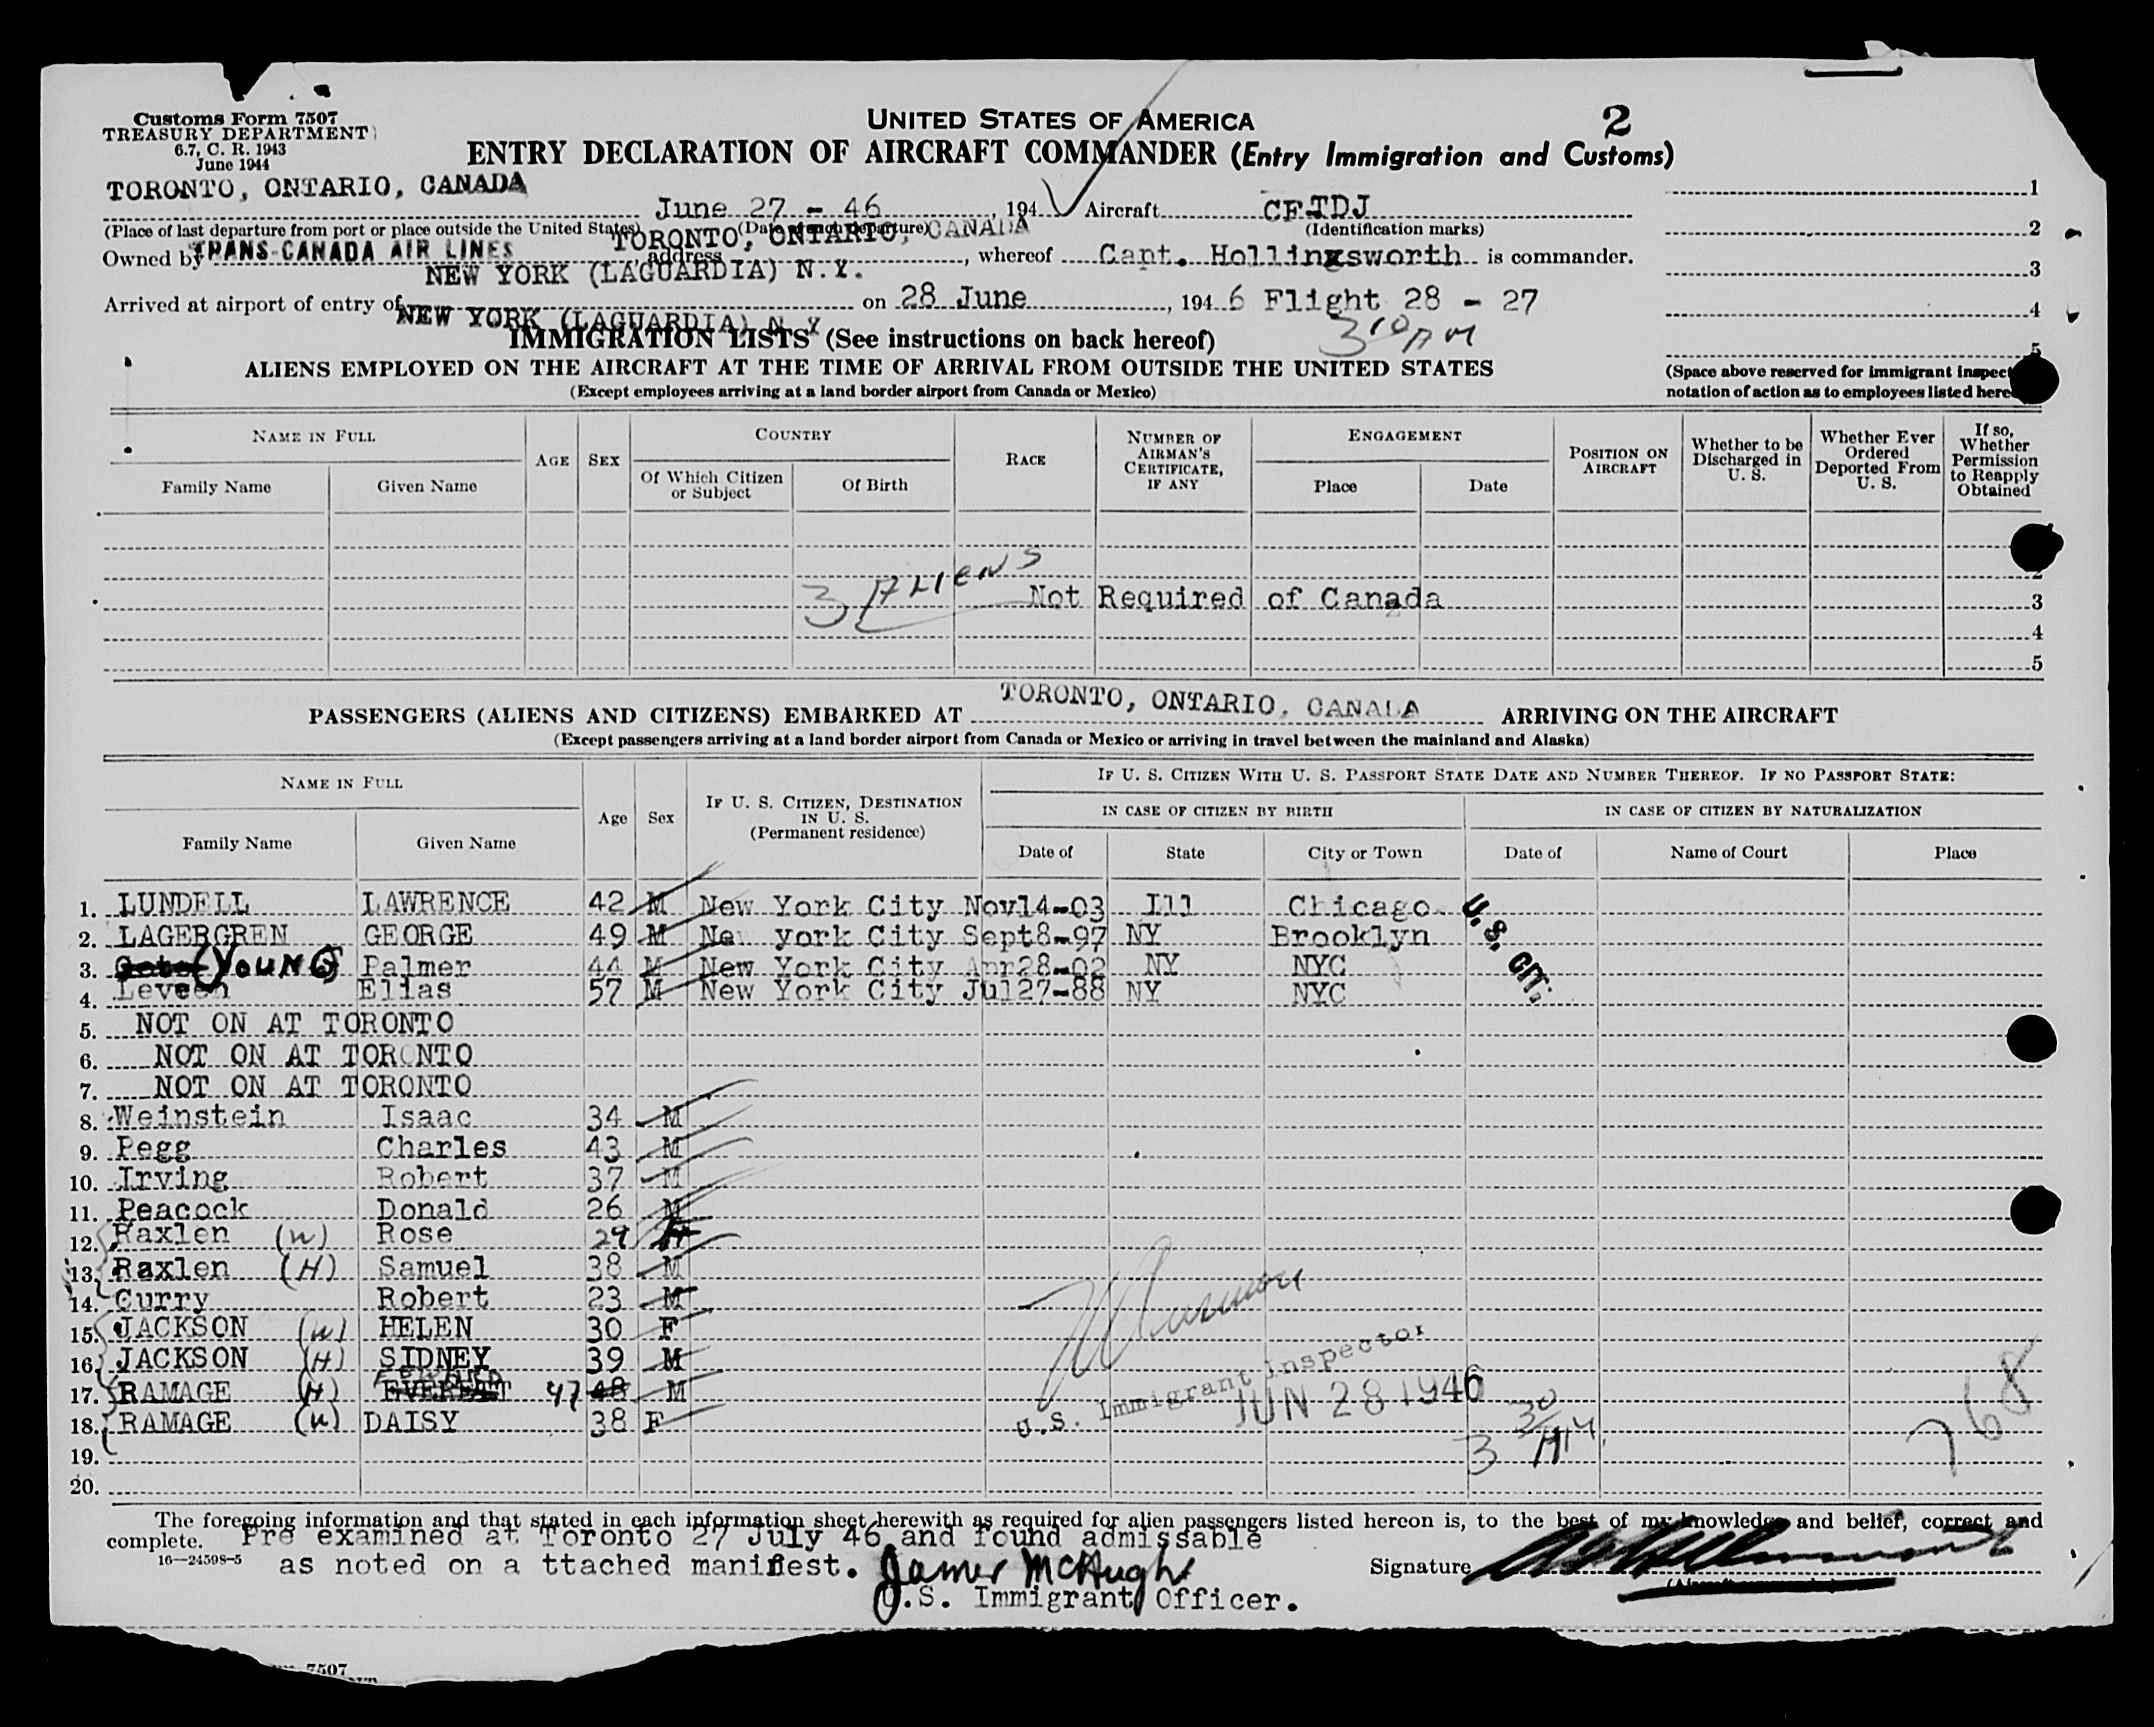 Customs Form 7507
TREASURY DEPARTMENT
6.7, C. R. 1943
June 1944
UNITED STATES OF AMERICA
2
ENTRY DECLARATION OF AIRCRAFT COMMANDER (Entry Immigration and Customs)
TORONTO, ONTARIO, CANADA June 27 - 46, 194 Aircraft CFTDJ
(Place of last departure from port or place outside the United States) (Date of such departure) (Identification marks)
TORONTO, ONTARIO, CANADA
Owned by TRANS-CANADA AIR LINES, address, whereof Capt. Hollingsworth is commander.
NEW YORK (LAGUARDIA) N.Y.
Arrived at airport of entry of on 28 June, 1946 Flight 28 - 27
NEW YORK (LAGUARDIA) N Y
3 10 PM
IMMIGRATION LISTS (See instructions on back hereof)
1
2
3
4
5
ALIENS EMPLOYED ON THE AIRCRAFT AT THE TIME OF ARRIVAL FROM OUTSIDE THE UNITED STATES
(Except employees arriving at a land border airport from Canada or Mexico)
(Space above reserved for immigrant inspect
notation of action as to employees listed here
NAME IN FULL
Family Name Given Name
AGE SEX
COUNTRY
Of Which Citizen or Subject
Of Birth
RACE
NUMBER OF AIRMAN'S CERTIFICATE, IF ANY
ENGAGEMENT
Place Date
POSITION ON AIRCRAFT
Whether to be Discharged in U. S.
Whether Ever Ordered Deported From U. S.
If so, Whether Permission to Reapply Obtained
3 ALIENS
2
Not Required of Canada 3
4
5
PASSENGERS (ALIENS AND CITIZENS) EMBARKED AT TORONTO, ONTARIO, CANADA ARRIVING ON THE AIRCRAFT
(Except passengers arriving at a land border airport from Canada or Mexico or arriving in travel between the mainland and Alaska)
NAME IN FULL
Family Name Given Name
Age Sex
IF U. S. CITIZEN, DESTINATION IN U. S. (Permanent residence)
IF U. S. CITIZEN WITH U. S. PASSPORT STATE DATE AND NUMBER THEREOF. IF NO PASSPORT STATE:
IN CASE OF CITIZEN BY BIRTH IN CASE OF CITIZEN BY NATURALIZATION
Date of State City or Town Date of Name of Court Place
1. LUNDELL LAWRENCE 42 M New York City Nov14-03 Ill Chicago
2. LAGERGREN GEORGE 49 M New york City Sept8-97 NY Brooklyn
3. (YOUNG) Palmer 44 M New York City Apr28-02 NY NYC
4. Leveen Elias 57 M New York City Jul27-88 NY NYC
U. S. CIT.
5. NOT ON AT TORONTO
6. NOT ON AT TORONTO
7. NOT ON AT TORONTO
8. Weinstein Isaac 34 M
9. Pegg Charles 43 M
10. Irving Robert 37 M
11. Peacock Donald 26 M
12. Raxlen (W) Rose 29
13. Raxlen (H) Samuel 38 M
14. Curry Robert 23 M
15. JACKSON (W) HELEN 30 F
16. JACKSON (H) SIDNEY 39 M
17. RAMAGE (H) EVEREAT 47 48 M
18. RAMAGE (W) DAISY 38 F
19.
20.
U.S. Immigrant Inspector
JUN 28 1946
3 30 PM
768
The foregoing information and that stated in each information sheet herewith as required for alien passengers listed hereon is, to the best of my knowledge and belief, correct and
complete.
Pre examined at Toronto 27 July 46 and found admissable
16—24598-5
as noted on a ttached manifest.
James McHugh
U.S. Immigrant Officer.
Signature
7507